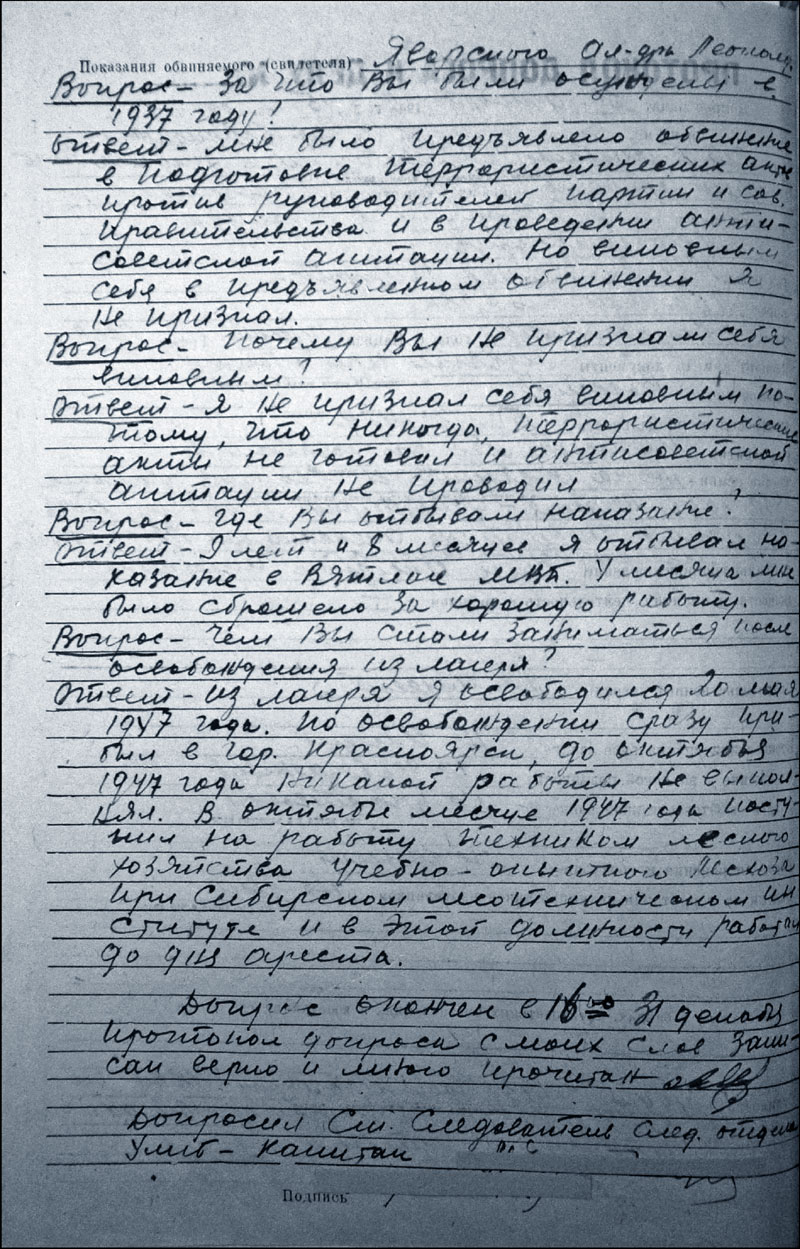 Показания обвиняемого (свидетеля) Яворского Ал-дра Леопольд.
Вопрос – За что Вы были осуждены в
1937 году?
Ответ – Мне было предъявлено обвинение
в подготовке террористических акт
против руководителей партии и сов.
правительства и в проведении анти-
советской агитации. Но виновным
себя в предъявленном обвинении я
не признал.
Вопрос – Почему Вы не признали себя
виновным?
Ответ – Я не признал себя виновным по-
тому, что никогда, террористические
акты не готовил и антисоветской
агитации не проводил
Вопрос – Где Вы отбывали наказание?
Ответ – 9 лет и 8 месяцев я отбывал на-
казание в Вятлаг МВД. 4 месяца мне
было сброшено за хорошую работу.
Вопрос – Чем Вы стали заниматься после
освобождения из лагеря?
Ответ – Из лагеря я освободился 20 мая
1947 года. По освобождении сразу при-
был в гор. Красноярск, до октября
1947 года никакой работы не выпол-
нял. В октябре месяце 1947 года посту-
пил на работу техником лесного
хозяйства учебно-опытного лесхоза
при Сибирском лесотехническом ин
ституте и в этой должности работал
до дня ареста.
Допрос окончен в 16 00 31 декабря
Протокол допроса с моих слов запи-
сан верно и мною прочитан
Допросил Ст. следователь след. отдела
УМГБ – капитан
Подпись